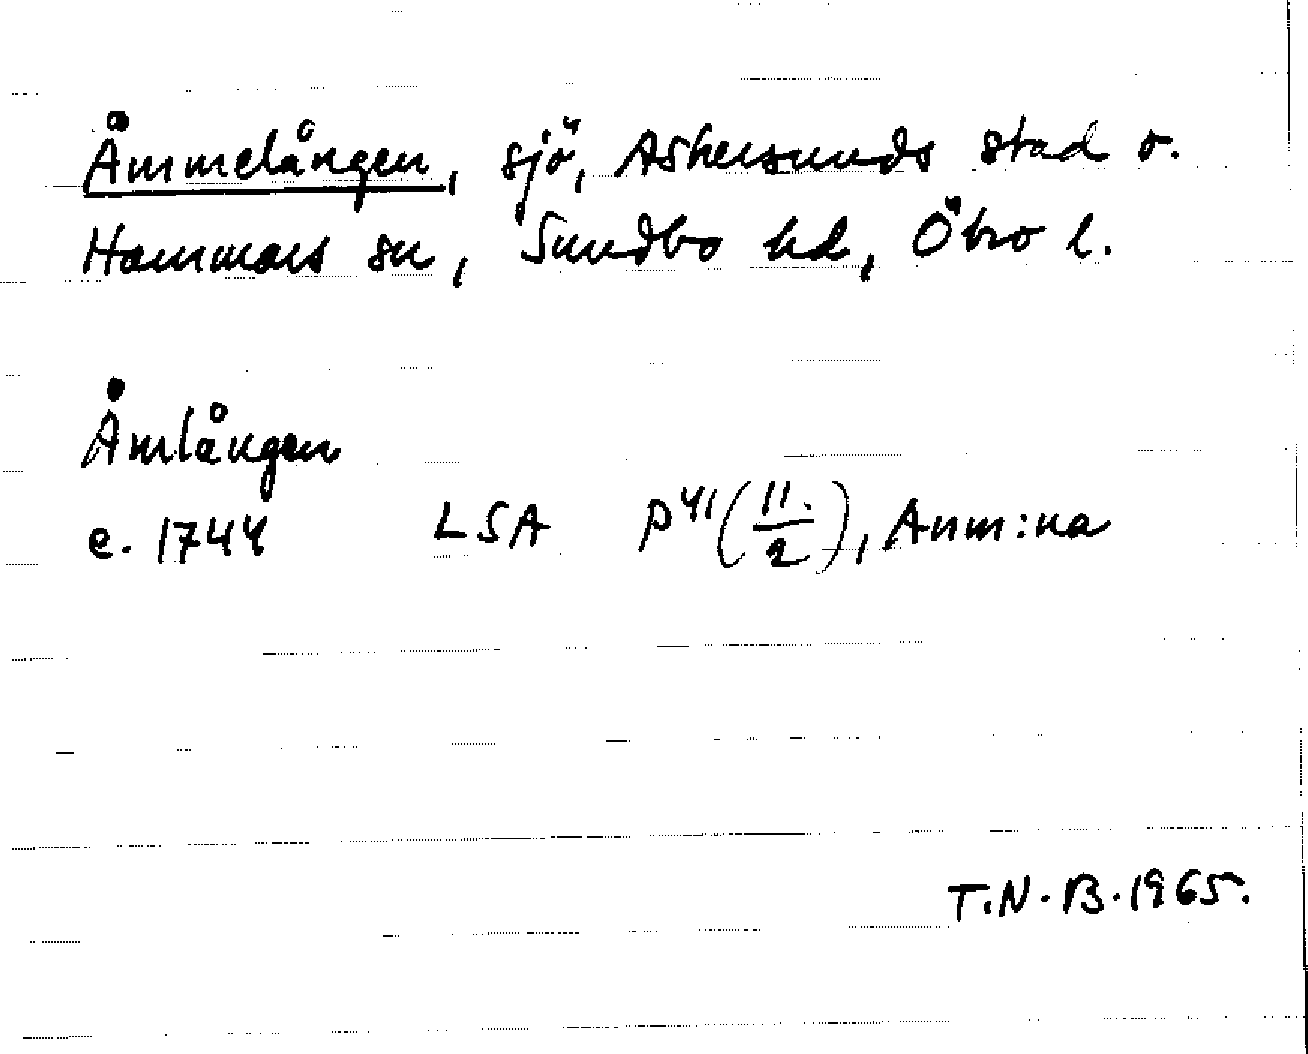 Åmmelången, sjö, Askersunds stad o.
Hammars sn, Sundbo hd, Öbro l.
Åmlången
e. 1744 LSA P41 (11./2), Anm:na
T.N.B. 1965.